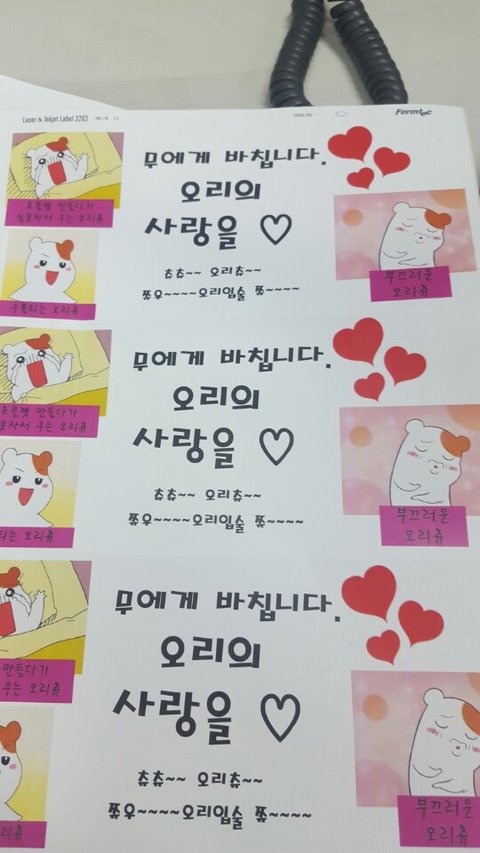 Laser & Inkjet Label 3203
Formtec
무에게 바칩니다.
오리의
사랑을 ♡
츄츄~~ 오리츄~~
쮸우~~~~오리입술 쮸~~~~
초콜렛 만들다가
잘못자서 우는 오리츄
우쭐되는 오리츄
부끄러운
오리츄
무에게 바칩니다.
오리의
사랑을 ♡
츄츄~~ 오리츄~~
쮸우~~~~오리입술 쮸~~~~
만들다가
우는 오리츄
되는 오리츄
부끄러운
오리츄
무에게 바칩니다.
오리의
사랑을 ♡
츄츄~~ 오리츄~~
쮸우~~~~오리입술 쮸~~~~
만들다가
우는 오리츄
리츄
부끄러운
오리츄